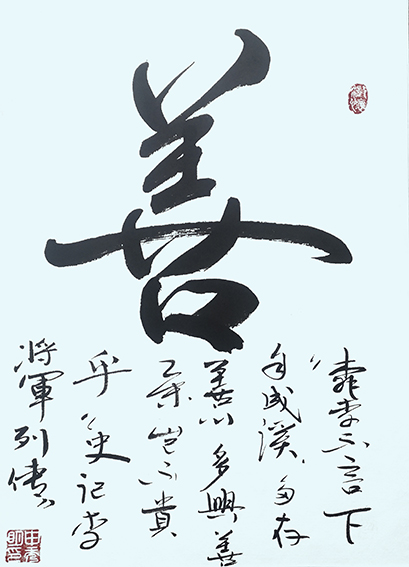 善
“桃李不言下
自成溪、多存
善心多興善
業岂不貴
乎”史記李
將軍列傳